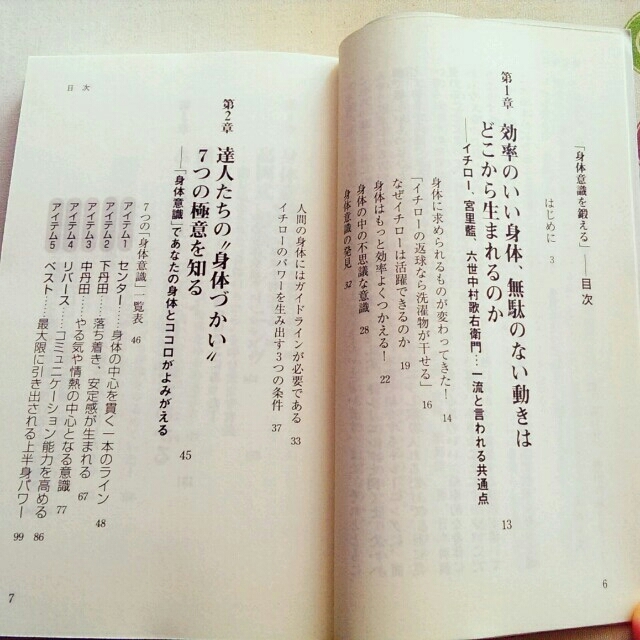 「身体意識を鍛える」——目次
はじめに 3
第1章 効率のいい身体、無駄のない動きは
どこから生まれるのか
——イチロー、宮里藍、六世中村歌右衛門…一流と言われる共通点 13
身体に求められるものが変わってきた! 14
「イチローの返球なら洗濯物が干せる」 16
なぜイチローは活躍できるのか 19
身体はもっと効率よくつかえる! 22
身体の中の不思議な意識 28
身体意識の発見 32
6
人間の身体にはガイドラインが必要である 33
イチローのパワーを生み出す3つの条件 37
第2章 達人たちの〝身体づかい〟
7つの極意を知る
——「身体意識」であなたの身体とココロがよみがえる 45
7つの「身体意識」一覧表 46
アイテム1 センター……身体の中心を貫く一本のライン 48
アイテム2 下丹田……落ち着き、安定感が生まれる 67
アイテム3 中丹田……やる気や情熱の中心となる意識 77
アイテム4 リバース……コミュニケーション能力を高める 86
アイテム5 ベスト……最大限に引き出される上半身パワー 99
目次
7